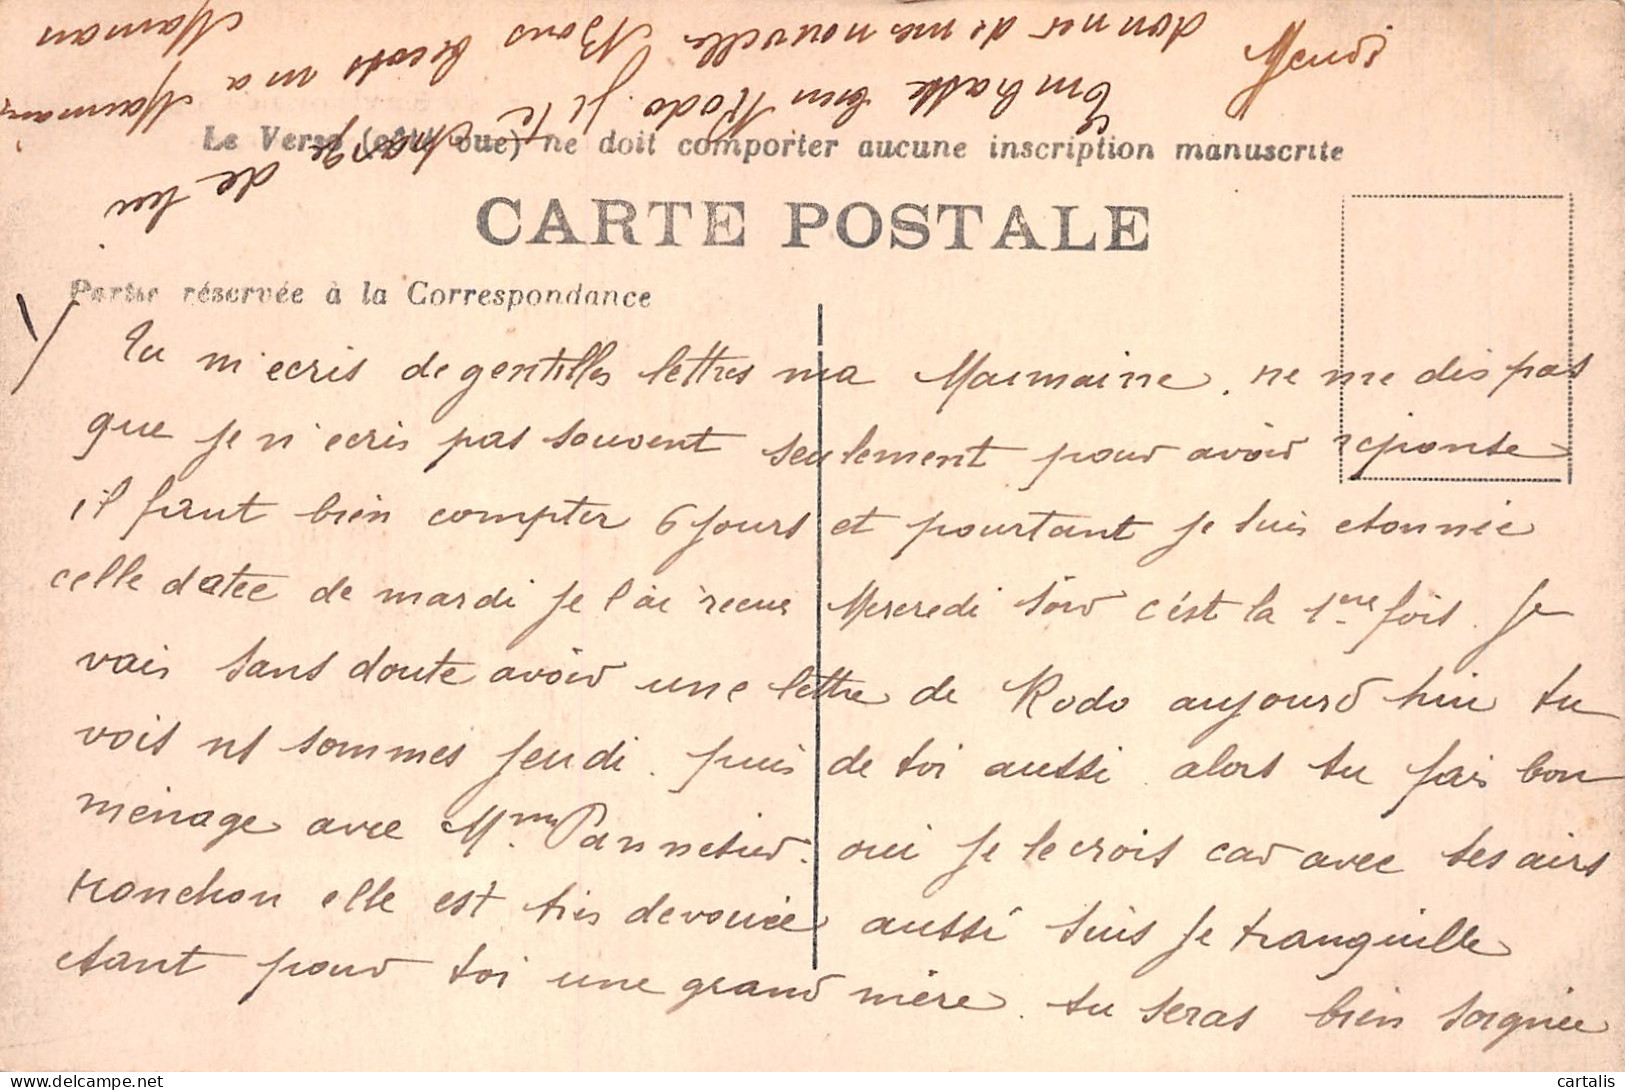 Jeudi
Embrasse bien Rodo. Je te charge de lui
donner de mes nouvelles Bons becots ma Mamaine
Maman
Le Verso (côté vue) ne doit comporter aucune inscription manuscrite
CARTE POSTALE
Partie réservée à la Correspondance
Tu m'ecris de gentilles lettres ma Mamaine, ne me dis pas
que je n'ecris pas souvent seulement pour avoir reponse
il faut bien compter 6 jours et pourtant je suis etonnée
celle datée de mardi je l'ai recue Mercredi soir c'est la 1ere fois. Je
vais sans doute avoir une lettre de Rodo aujourd'hui tu
vois ns sommes jeudi. puis de toi aussi alors tu fais bon
ménage avec Mme Pannetier. oui je le crois car avec ses airs
ronchon elle est très devouée aussi suis je tranquille
etant pour toi une grand mère. tu seras bien soignée
cartalis